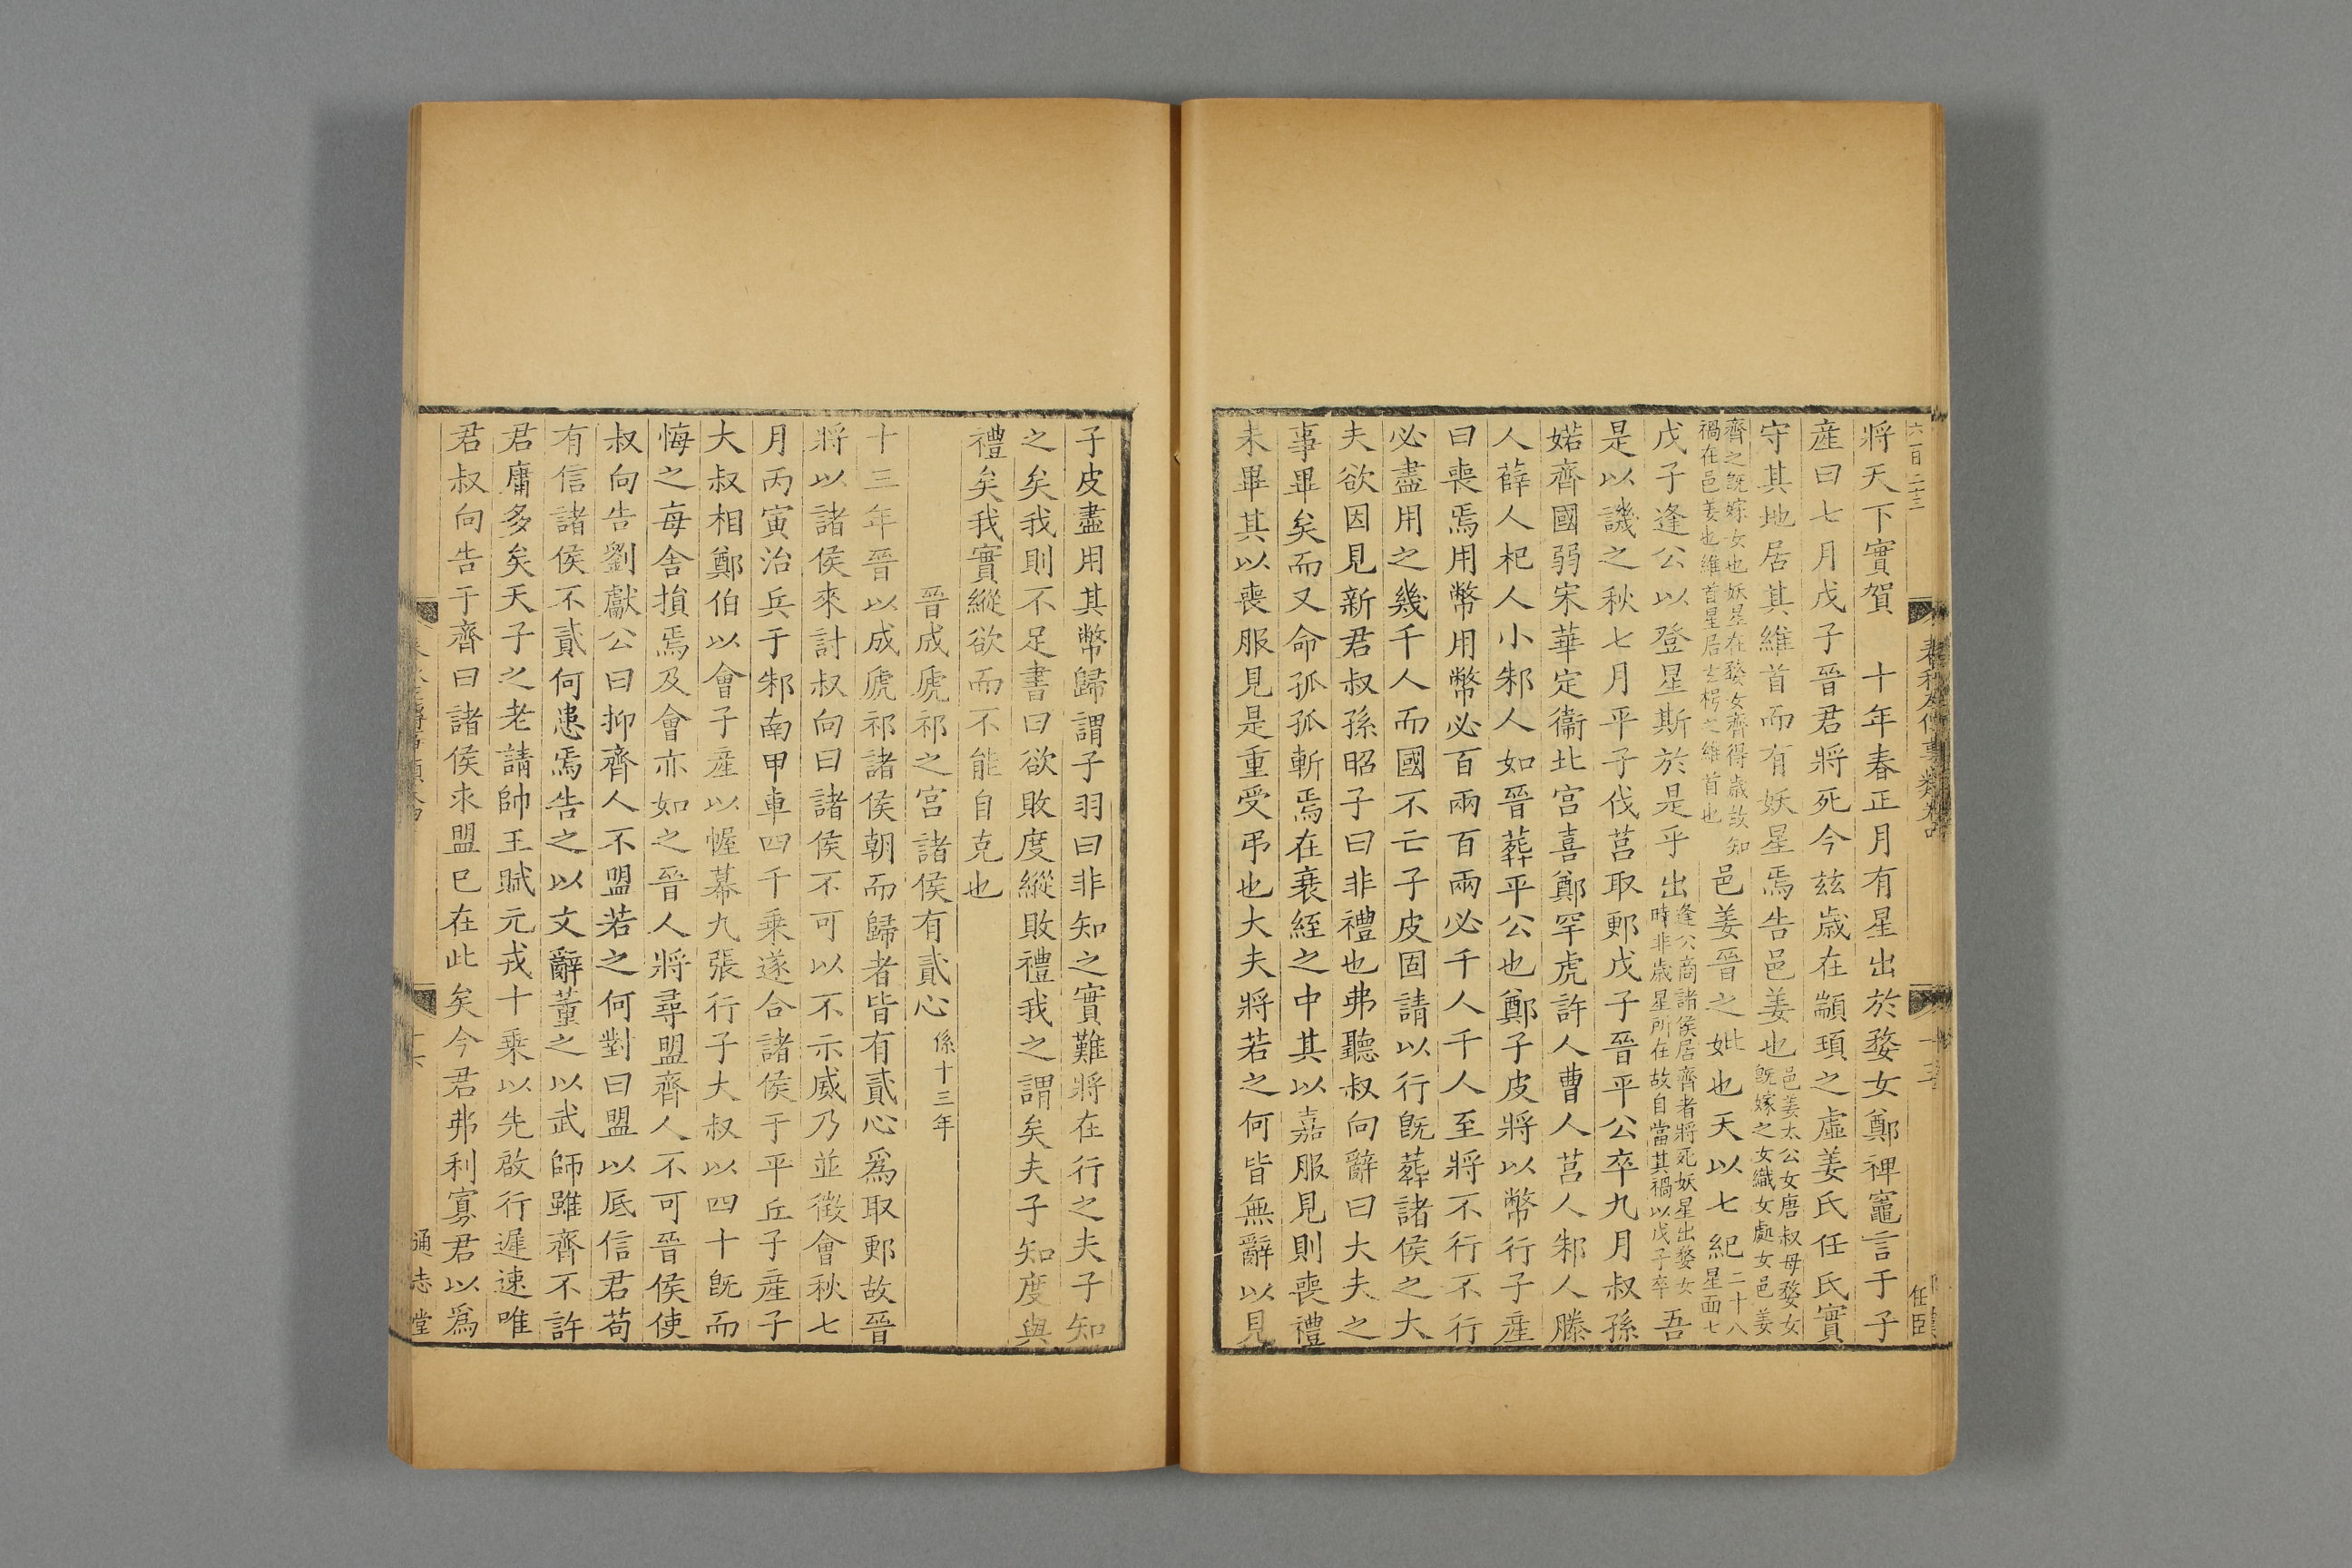 六百二十三
將天下實賀　十年春正月有星出於婺女鄭裨竈言于子
産曰七月戊子晉君將死今兹歳在顓頊之虛姜氏任氏實
守其地居其維首而有妖星焉告邑姜也邑姜太公女唐叔母婺女
旣嫁之女織女處女邑姜
齊之旣嫁女也妖星在婺女齊得歳故知
禍在邑姜也維首星居玄枵之維首也
邑姜晉之妣也天以七紀二十八
星面七
戊子逢公以登星斯於是乎出逢公商諸侯居齊者將死妖星出婺女
時非歳星所在故自當其禍以戊子卒
吾
是以譏之秋七月平子伐莒取郠戊子晉平公卒九月叔孫
婼齊國弱宋華定衞北宫喜鄭罕虎許人曹人莒人邾人滕
人薛人杞人小邾人如晉葬平公也鄭子皮將以幣行子産
曰喪焉用幣用幣必百兩百兩必千人千人至將不行不行
必盡用之幾千人而國不亡子皮固請以行旣葬諸侯之大
夫欲因見新君叔孫昭子曰非禮也弗聽叔向辭曰大夫之
事畢矣而又命孤孤斬焉在衰絰之中其以嘉服見則喪禮
未畢其以喪服見是重受弔也大夫將若之何皆無辭以見
子皮盡用其幣歸謂子羽曰非知之實難將在行之夫子知
之矣我則不足書曰欲敗度縱敗禮我之謂矣夫子知度與
禮矣我實縱欲而不能自克也
晉成虒祁之宫諸侯有貳心係十三年
十三年晉以成虒祁諸侯朝而歸者皆有貳心爲取郠故晉
將以諸侯來討叔向曰諸侯不可以不示威乃並徵會秋七
月丙寅治兵于邾南甲車四千乗遂合諸侯于平丘子産子
大叔相鄭伯以會子産以幄幕九張行子大叔以四十旣而
悔之每舍損焉及會亦如之晉人將尋盟齊人不可晉侯使
叔向告劉獻公曰抑齊人不盟若之何對曰盟以厎信君苟
有信諸侯不貳何患焉告之以文辭董之以武師雖齊不許
君庸多矣天子之老請帥王賦元戎十乗以先啟行遲速唯
君叔向告于齊曰諸侯求盟巳在此矣今君弗利寡君以爲
通志堂